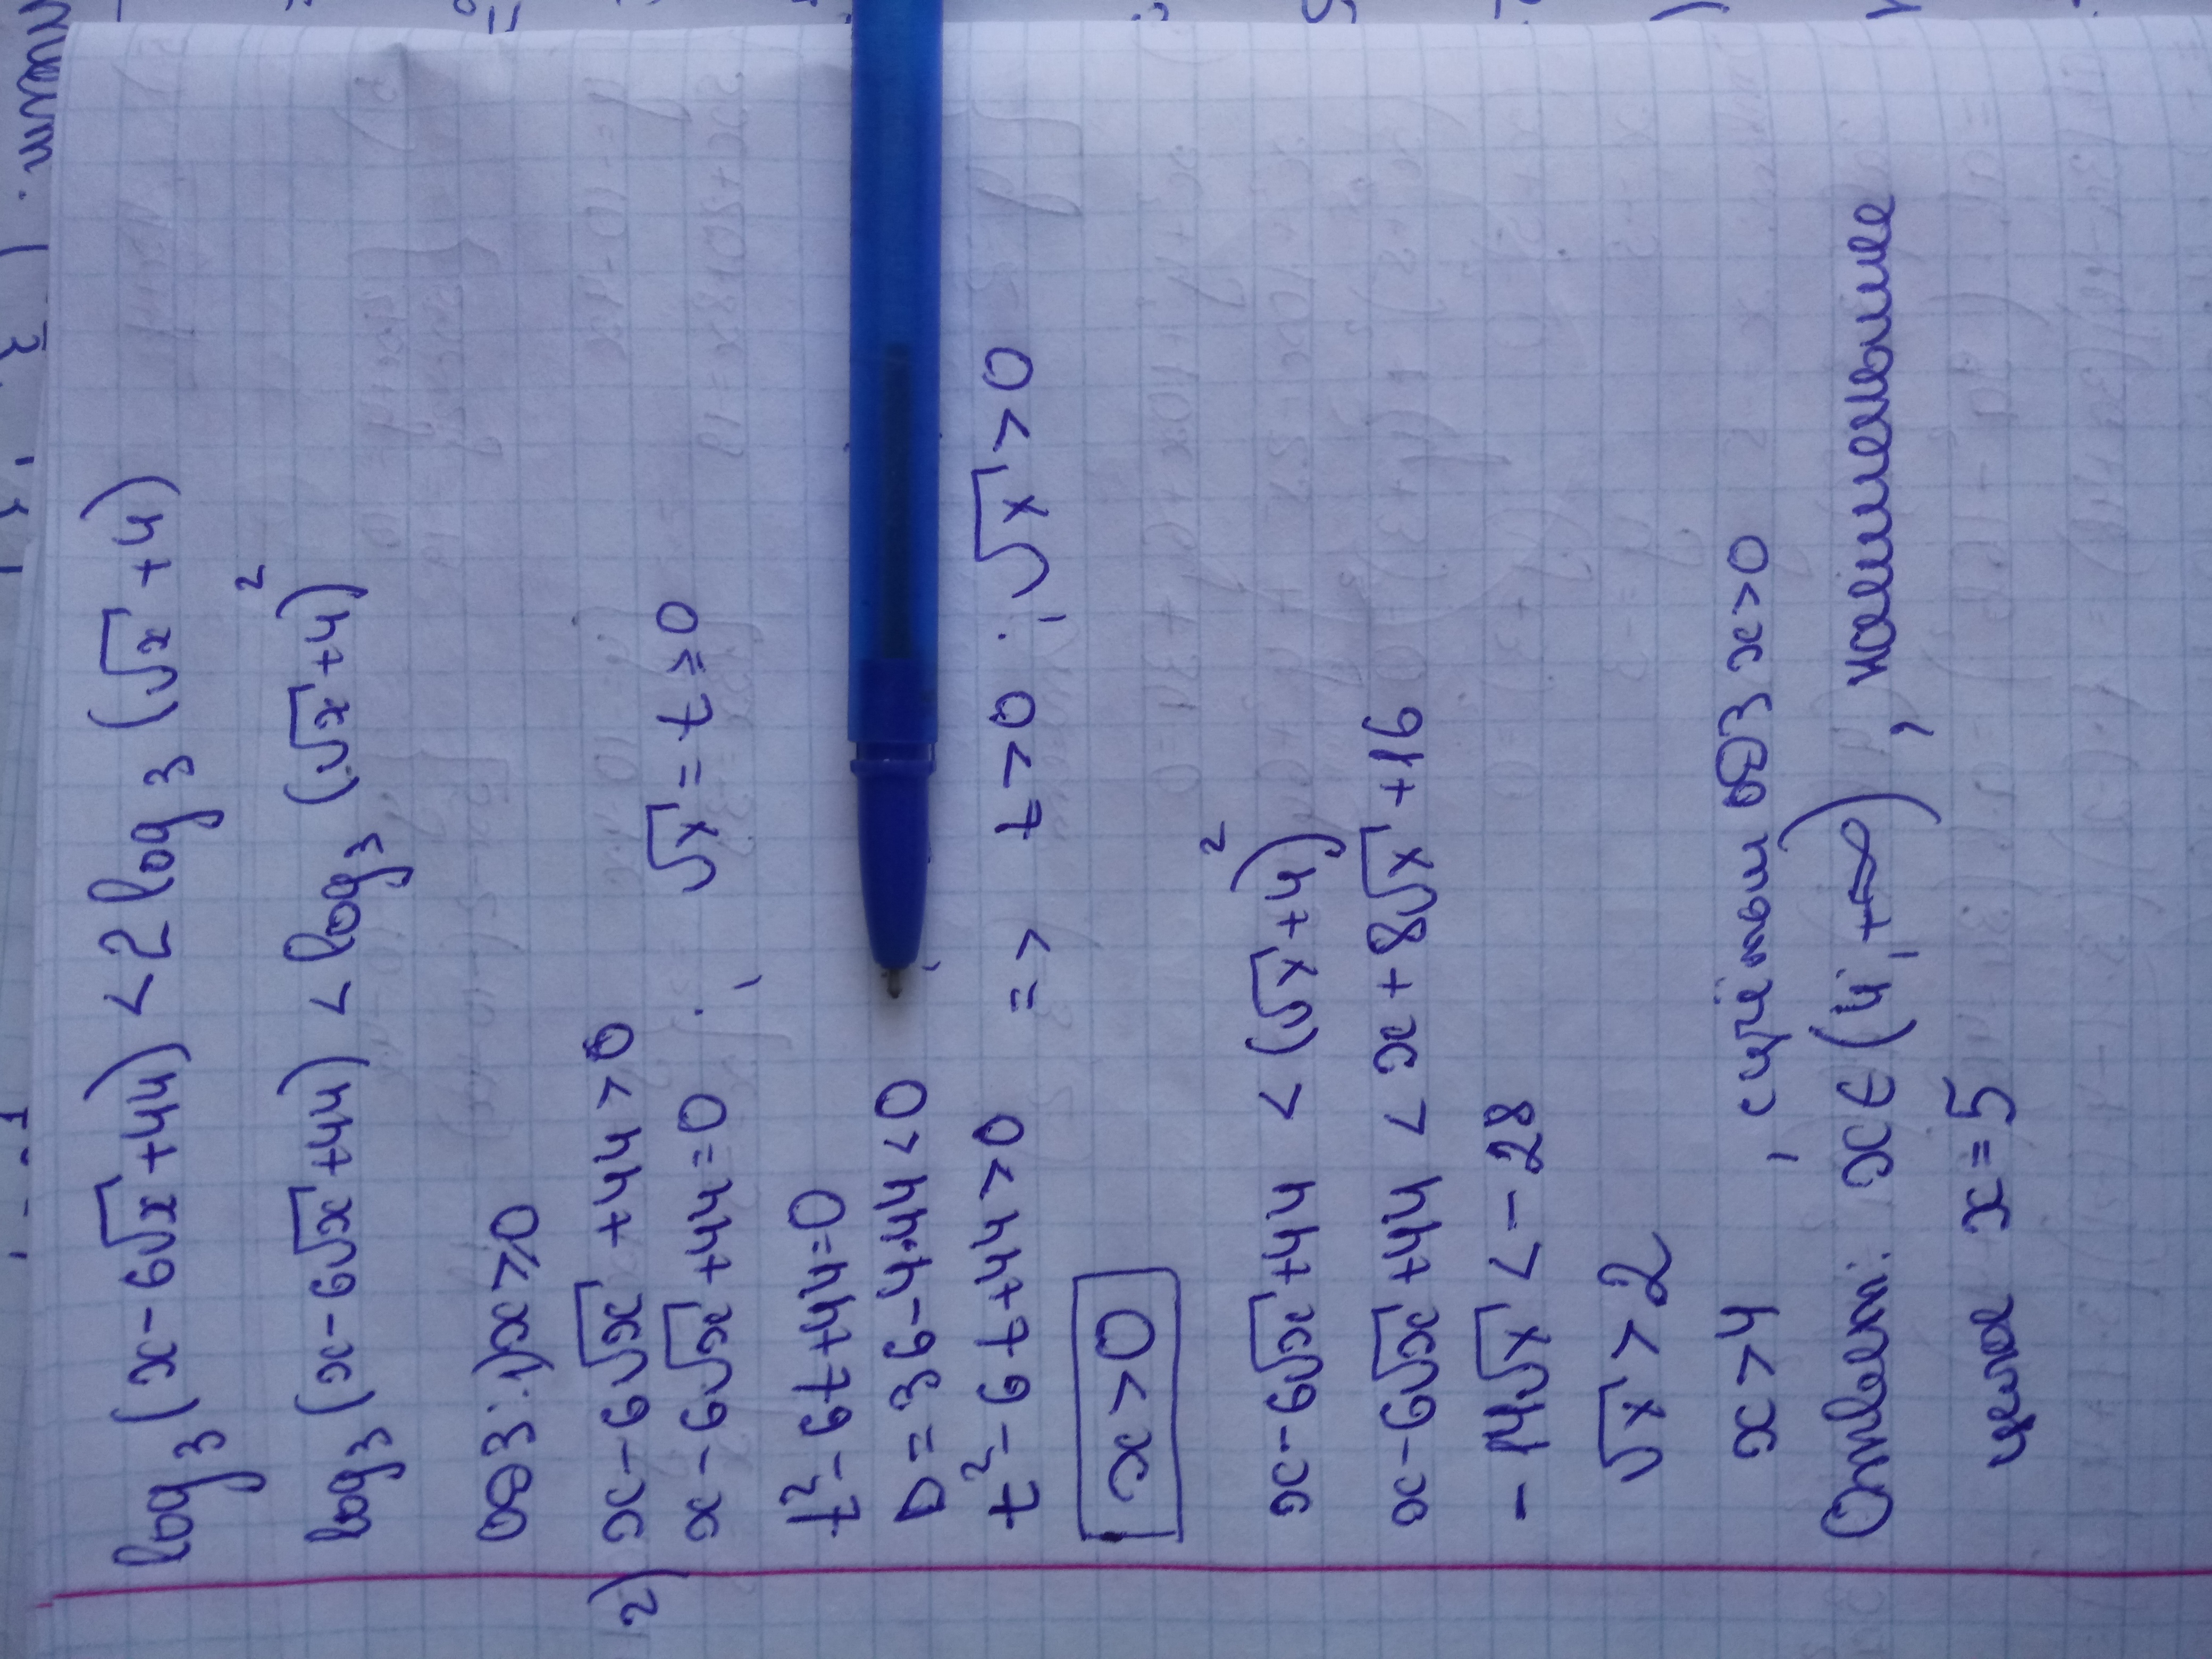 log₃(x-6√x+44) < 2log₃(√x+4)
log₃(x-6√x+44) < log₃(√x+4)²
ОДЗ: 1) x≥0
2) x-6√x+44>0
x-6√x+44=0. √x = t≥0
t²-6t+44=0
D=36-4·44<0
t²-6t+44>0 => t>0. √x>0
x>0
x-6√x+44 < (√x+4)²
x-6√x+44 < x+8√x+16
-14√x < -28
√x>2
x>4, с учётом ОДЗ x>0
Ответ: x∈(4;+∞), наименьшее
целое x=5